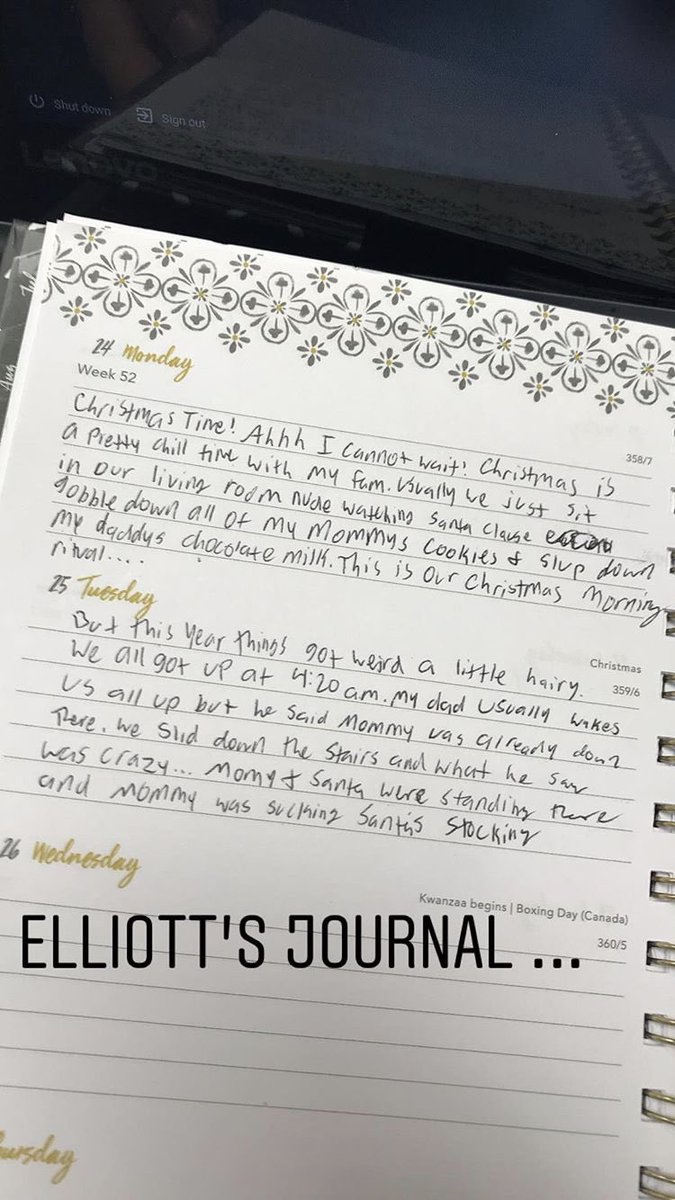 Shut down
Sign out
Lenovo
Jul
Aug
24 Monday
Week 52
358/7
Christmas Time! Ahhh I cannot wait! Christmas is
a pretty chill time with my fam. Usually we just sit
in our living room nude watching Santa Clause
gobble down all of my Mommys cookies & slup down
my daddys chocolate milk. This is our Christmas Morning
ritual....
25 Tuesday
Christmas
359/6
But this year things got weird a little hairy.
We all got up at 4:20 am. My dad usually wakes
us all up but he said Mommy was already down
there. We slid down the stairs and what he say
was crazy... Momy & Santa were standing there
and Mommy was sucking Santas stocking
26 Wednesday
Kwanzaa begins | Boxing Day (Canada)
360/5
ELLIOTT'S JOURNAL ...
hursday